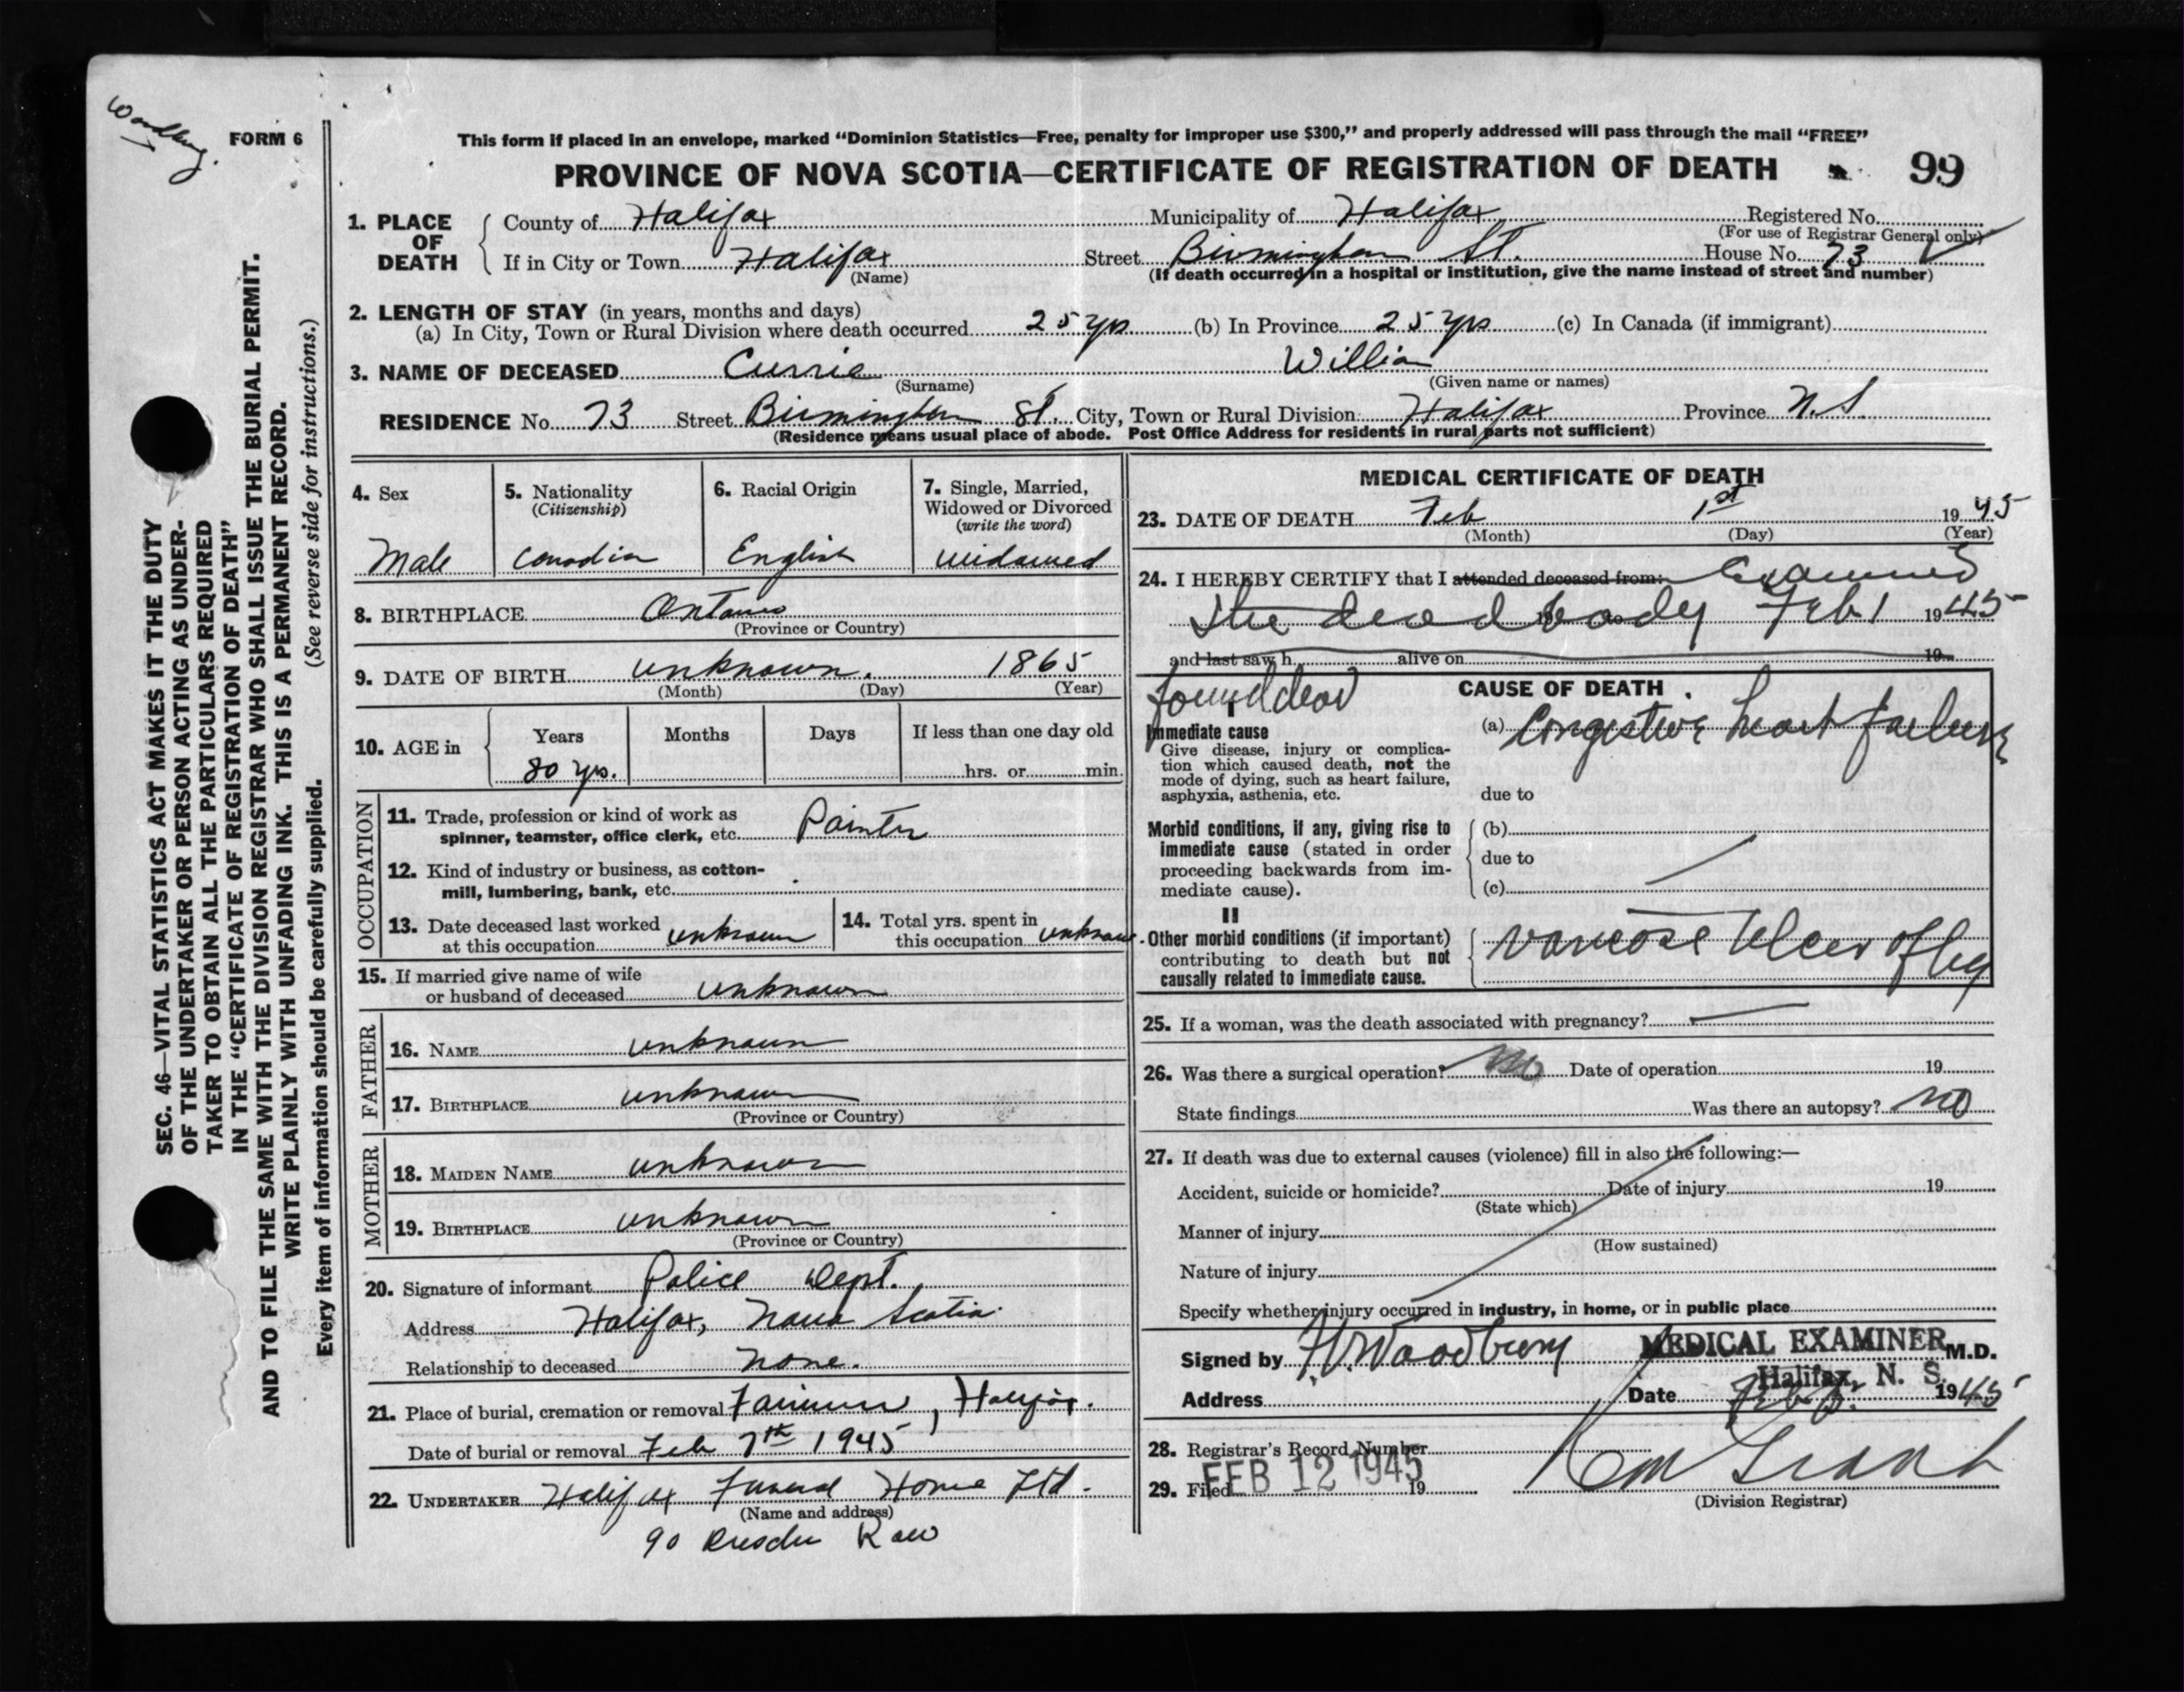 Woodbury.
FORM 6
This form if placed in an envelope, marked "Dominion Statistics—Free, penalty for improper use $300," and properly addressed will pass through the mail "FREE"
PROVINCE OF NOVA SCOTIA—CERTIFICATE OF REGISTRATION OF DEATH 99
SEC. 46—VITAL STATISTICS ACT MAKES IT THE DUTY
OF THE UNDERTAKER OR PERSON ACTING AS UNDER-
TAKER TO OBTAIN ALL THE PARTICULARS REQUIRED
IN THE "CERTIFICATE OF REGISTRATION OF DEATH"
AND TO FILE THE SAME WITH THE DIVISION REGISTRAR WHO SHALL ISSUE THE BURIAL PERMIT.
WRITE PLAINLY WITH UNFADING INK. THIS IS A PERMANENT RECORD.
Every item of information should be carefully supplied. (See reverse side for instructions.)
1. PLACE OF DEATH County of Halifax Municipality of Halifax Registered No.
(For use of Registrar General only)
If in City or Town Halifax Street Birmingham St. House No. 73
(Name) (If death occurred in a hospital or institution, give the name instead of street and number)
2. LENGTH OF STAY (in years, months and days)
(a) In City, Town or Rural Division where death occurred 25 yrs (b) In Province 25 yrs (c) In Canada (if immigrant)
3. NAME OF DECEASED Currie William
(Surname) (Given name or names)
RESIDENCE No. 73 Street Birmingham St. City, Town or Rural Division Halifax Province N.S.
(Residence means usual place of abode. Post Office Address for residents in rural parts not sufficient)
4. Sex 5. Nationality 6. Racial Origin 7. Single, Married,
(Citizenship) Widowed or Divorced
(write the word)
Male Canadian English Widowed
8. BIRTHPLACE Ontario
(Province or Country)
9. DATE OF BIRTH unknown. 1865
(Month) (Day) (Year)
10. AGE in Years Months Days If less than one day old
80 yrs. hrs. or min.
OCCUPATION
11. Trade, profession or kind of work as
spinner, teamster, office clerk, etc. Painter
12. Kind of industry or business, as cotton-
mill, lumbering, bank, etc.
13. Date deceased last worked
at this occupation unknown
14. Total yrs. spent in
this occupation unknown
15. If married give name of wife
or husband of deceased unknown
FATHER
16. NAME unknown
17. BIRTHPLACE unknown
(Province or Country)
MOTHER
18. MAIDEN NAME unknown
19. BIRTHPLACE unknown
(Province or Country)
20. Signature of informant Police Dept.
Address Halifax, Nova Scotia.
Relationship to deceased none.
21. Place of burial, cremation or removal Fairview, Halifax.
Date of burial or removal Feb 7th 1945
22. UNDERTAKER Halifax Funeral Home Ltd.
(Name and address)
90 Dresden Row
MEDICAL CERTIFICATE OF DEATH
23. DATE OF DEATH Feb 1st 1945
(Month) (Day) (Year)
24. I HEREBY CERTIFY that I attended deceased from: Examined
the dead body Feb 1 1945
and last saw h alive on 19
found dead
CAUSE OF DEATH
I
Immediate cause (a) Congestive heart failure
Give disease, injury or complica-
tion which caused death, not the
mode of dying, such as heart failure,
asphyxia, asthenia, etc.
due to
Morbid conditions, if any, giving rise to (b)
immediate cause (stated in order due to
proceeding backwards from im-
mediate cause). (c)
II
Other morbid conditions (if important) Varicose Ulcer of leg
contributing to death but not
causally related to immediate cause.
25. If a woman, was the death associated with pregnancy?
26. Was there a surgical operation? no Date of operation 19
State findings Was there an autopsy? no
27. If death was due to external causes (violence) fill in also the following:—
Accident, suicide or homicide? Date of injury 19
(State which)
Manner of injury
(How sustained)
Nature of injury
Specify whether injury occurred in industry, in home, or in public place
Signed by Woodbury MEDICAL EXAMINER M.D.
Halifax, N. S.
Address Date Feb 1945
28. Registrar's Record Number
29. Filed FEB 12 1945 19
(Division Registrar)